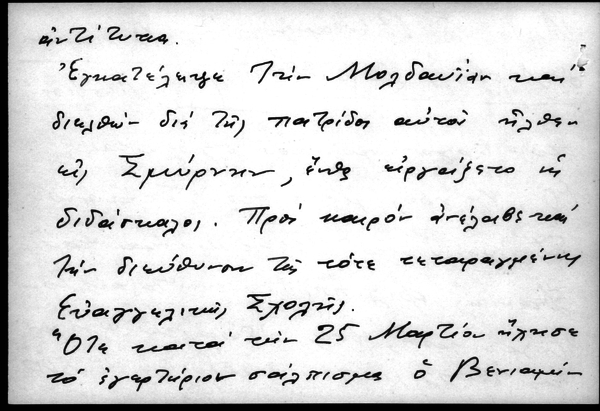 ἀντίτυπα.
Ἐγκατέλειψε τὴν Μολδαυΐαν καὶ
διελθὼν διὰ τῆς πατρίδος αὐτοῦ ἦλθεν
εἰς Σμύρνην, ἔνθα εἰργάζετο ὡς
διδάσκαλος. Πρὸς καιρὸν ἀνέλαβε καὶ
τὴν διεύθυνσιν τῆς τότε τεταραγμένης
Εὐαγγελικῆς Σχολῆς.
Ὅτε κατὰ τὴν 25 Μαρτίου ἤχησε
τὸ ἐγερτήριον σάλπισμα ὁ Βενιαμὶν